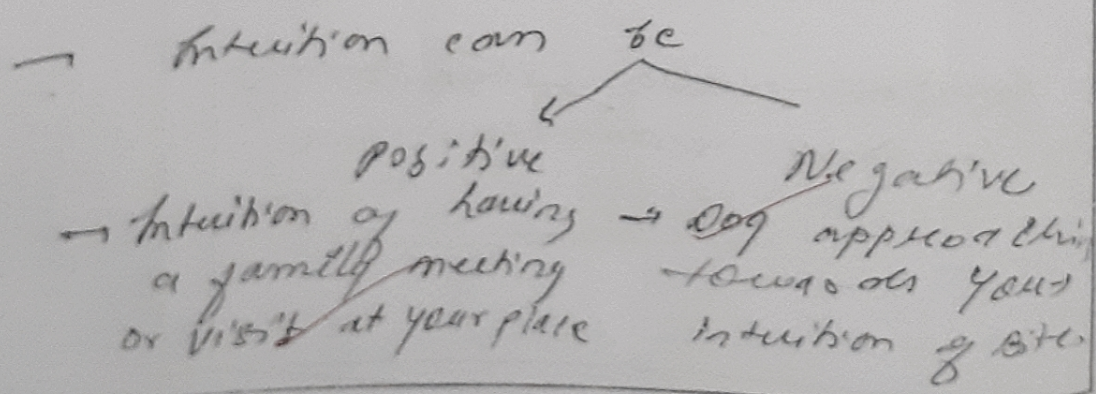 → Intuition can be
Positive
Negative
→ Intuition of having
a family meeting
or visit at your place
→ Dog approaching
towards you →
intuition of bite.